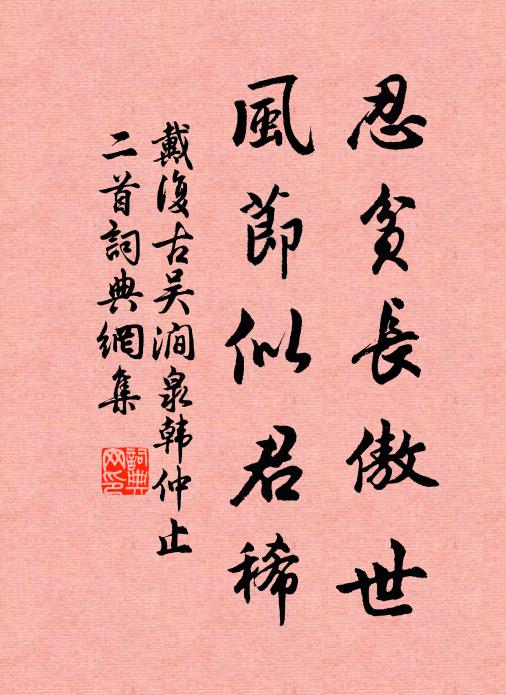 忍貧長傲世
風節似君稀
戴復古吴澗泉韩仲止
二首詞典網集
詞典网印